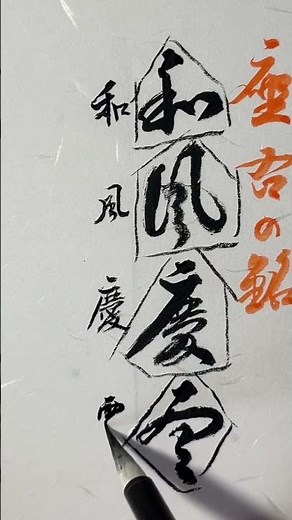 座右の銘
和風慶雲
和風慶